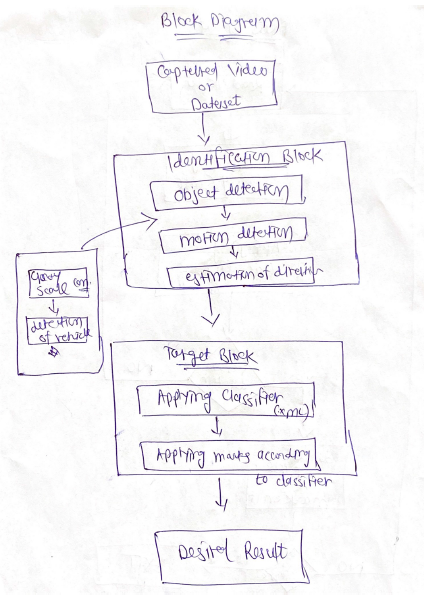 Block Diagram
Captured Video
or
Dataset
Identification Block
Object detection
motion detection
estimation of direction
Gray
Scale con.
detection
of vehicle
Target Block
Applying Classifier
Applying marks according
to classifier
Desired Result